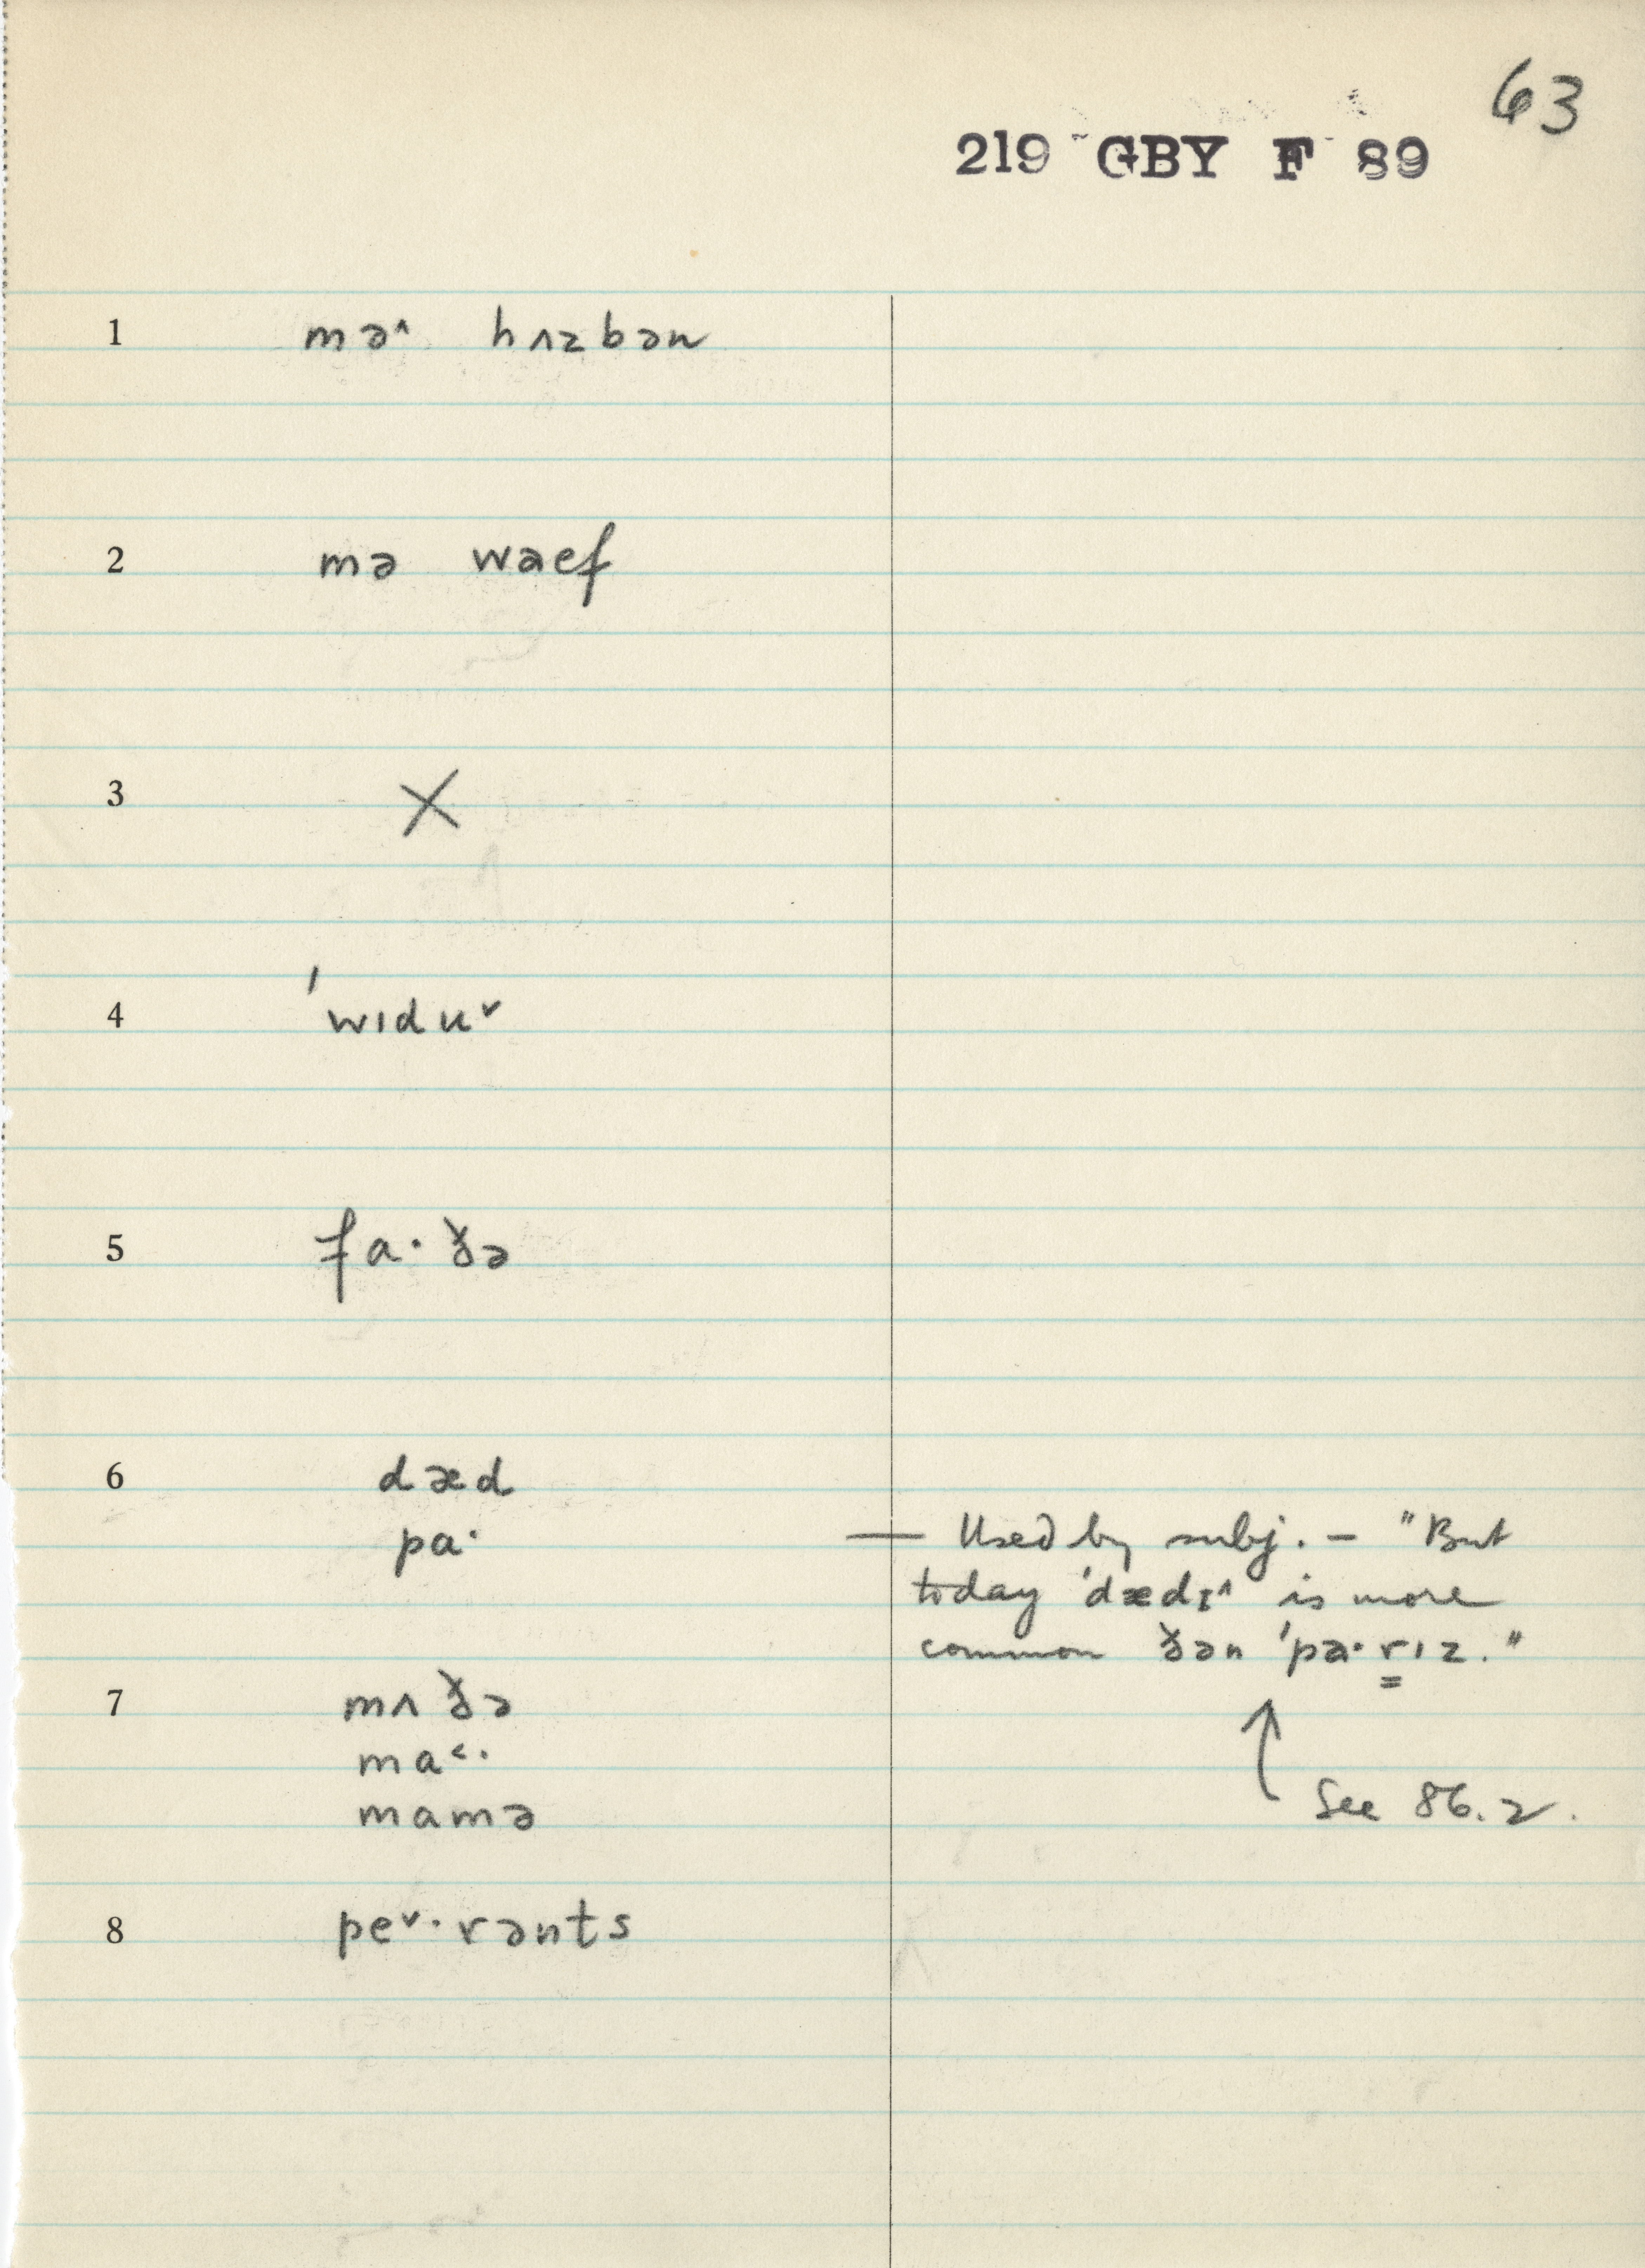 63
219 GBY F 89
1 mə^ hʌzbən
2 mə waef
3 X
4 'wɪduˇ
5 fa·ðə
6 dæd
pa· — Used by subj. – "But
today 'dædɪ^ is more
common ðən 'pa·rɪz."
7 mʌðə
ma<·
mamə See 86.2.
8 peˇ·rənts